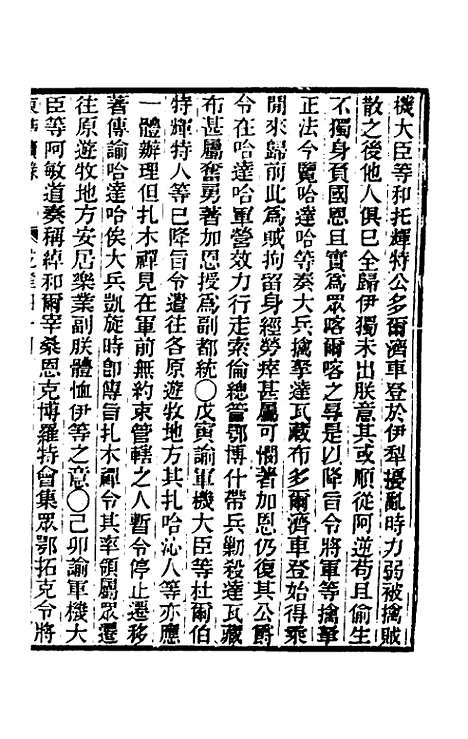 機大臣等和托輝特公多爾濟車登於伊犁擾亂時力弱被擒賊
散之後他人俱已全歸伊獨未出朕意其或順從阿逆苟且偷生
不獨身負國恩且實爲眾喀爾喀之辱是以降旨令將軍等擒拏
正法今覽哈達哈等奏大兵擒拏達瓦藏布多爾濟車登始得乘
閒來歸前此爲賊拘留身經勞瘁甚屬可憫著加恩仍復其公爵
令在哈達哈軍營效力行走索倫總管鄂博什帶兵勦殺達瓦藏
布甚屬奮勇著加恩授爲副都統〇戊寅諭軍機大臣等杜爾伯
特輝特人等已降旨令遣往各原遊牧地方其扎哈沁人等亦應
一體辦理但扎木禪見在軍前無約束管轄之人暫令停止遷移
著傳諭哈達哈俟大兵凱旋時卽傳旨扎木禪令其率領屬眾遷
往原遊牧地方安居樂業副朕體恤伊等之意〇己卯諭軍機大
臣等阿敏道奏稱綽和爾宰桑恩克博羅特會集眾鄂拓克令將
東華續錄